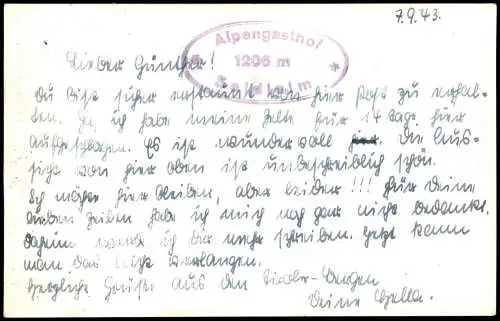 7.9.43.
Alpengasthof
1206 m
Lieber Günther!
Du bist sicher erstaunt von hier Post zu erhal-
ten. Ja, ich habe meine Zelte für 14 Tage hier
aufgeschlagen. Es ist wundervoll. Die Aus-
sicht von hier oben ist unbeschreiblich schön.
Ich möchte hier bleiben, aber leider!!! Für Deine
lieben Zeilen habe ich mich noch gar nicht bedankt.
Daheim werde ich Dir mehr schreiben. Jetzt kann
man das nicht verlangen.
Herzliche Grüße aus den Tiroler-Bergen
Deine Hella.